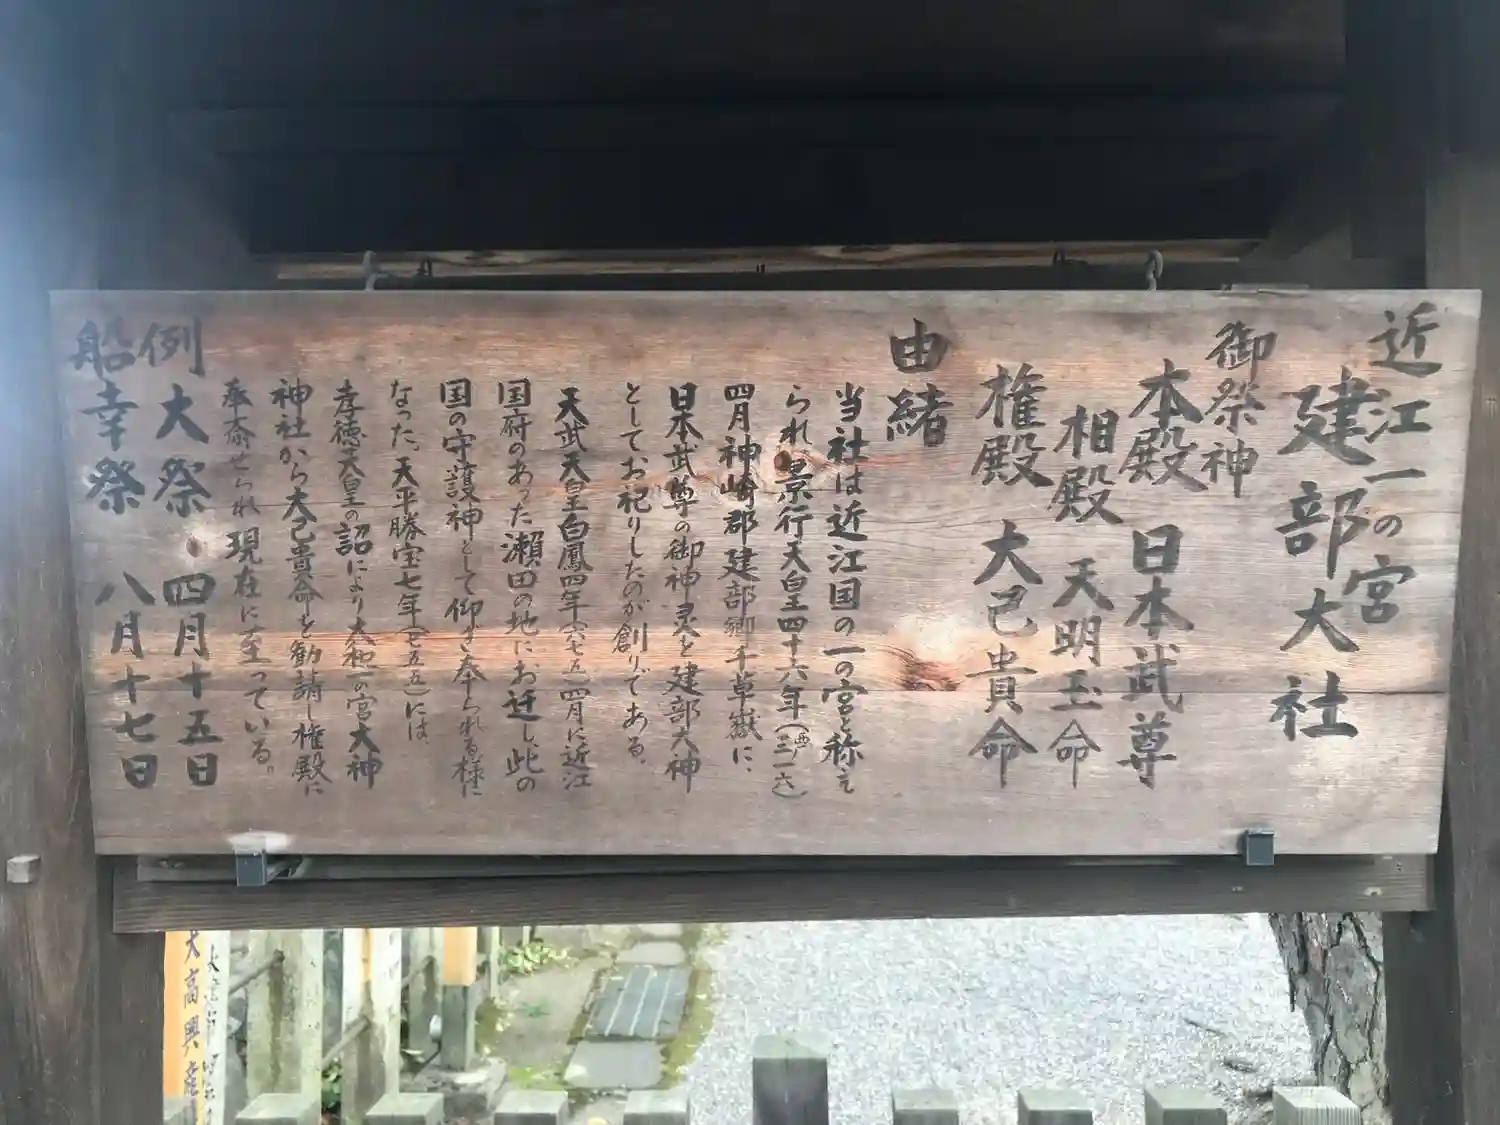 近江一の宮
建部大社
御祭神
本殿 日本武尊
相殿 天明玉命
権殿 大己貴命
由緒
当社は近江国の一の宮と称え
られ、景行天皇四十六年(西三一六)
四月神崎郡建部郷千草嶽に、
日本武尊の御神霊を建部大神
としてお祀りしたのが創りである。
天武天皇白鳳四年(六七五)四月に近江
国府のあった瀬田の地にお迁し、此の
国の守護神として仰ぎ奉られる様に
なった。天平勝宝七年(七五五)には、
孝徳天皇の詔により大和一の宮大神
神社から大己貴命を勧請し権殿に
奉斎せられ現在に至っている。
例大祭 四月十五日
船幸祭 八月十七日
大高興産